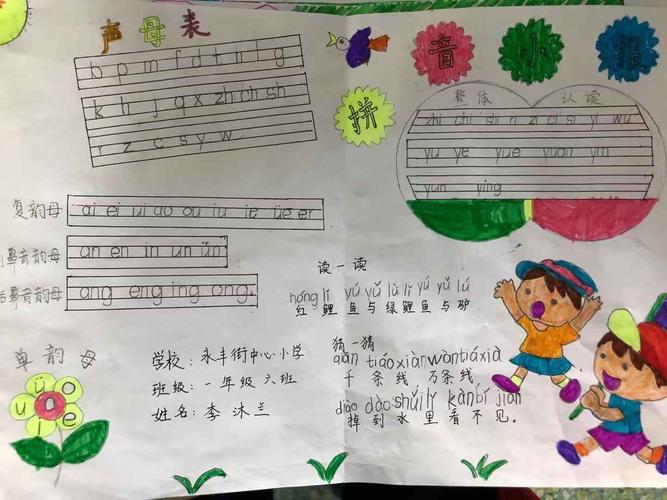 声母表
b p m f d t n l g
k h j q x zh ch sh
r z c s y w
拼音小报
整体 认读
zhi chi shi ri zi ci si yi wu
yu ye yue yuan yin
yun ying
复韵母 ai ei ui ao ou iu ie üe er
鼻音韵母 an en in un ün
后鼻音韵母 ang eng ing ong
单韵母
学校:永丰街中心小学
班级:一年级六班
姓名:李沐兰
读一读
hóng lǐ yú yǔ lǜ lǐ yú yǔ lǘ
红鲤鱼与绿鲤鱼与驴
猜一猜
qiān tiáo xiàn wàn tiáo xiàn
千条线,万条线,
diào dào shuǐ lǐ kàn bú jiàn
掉到水里看不见。